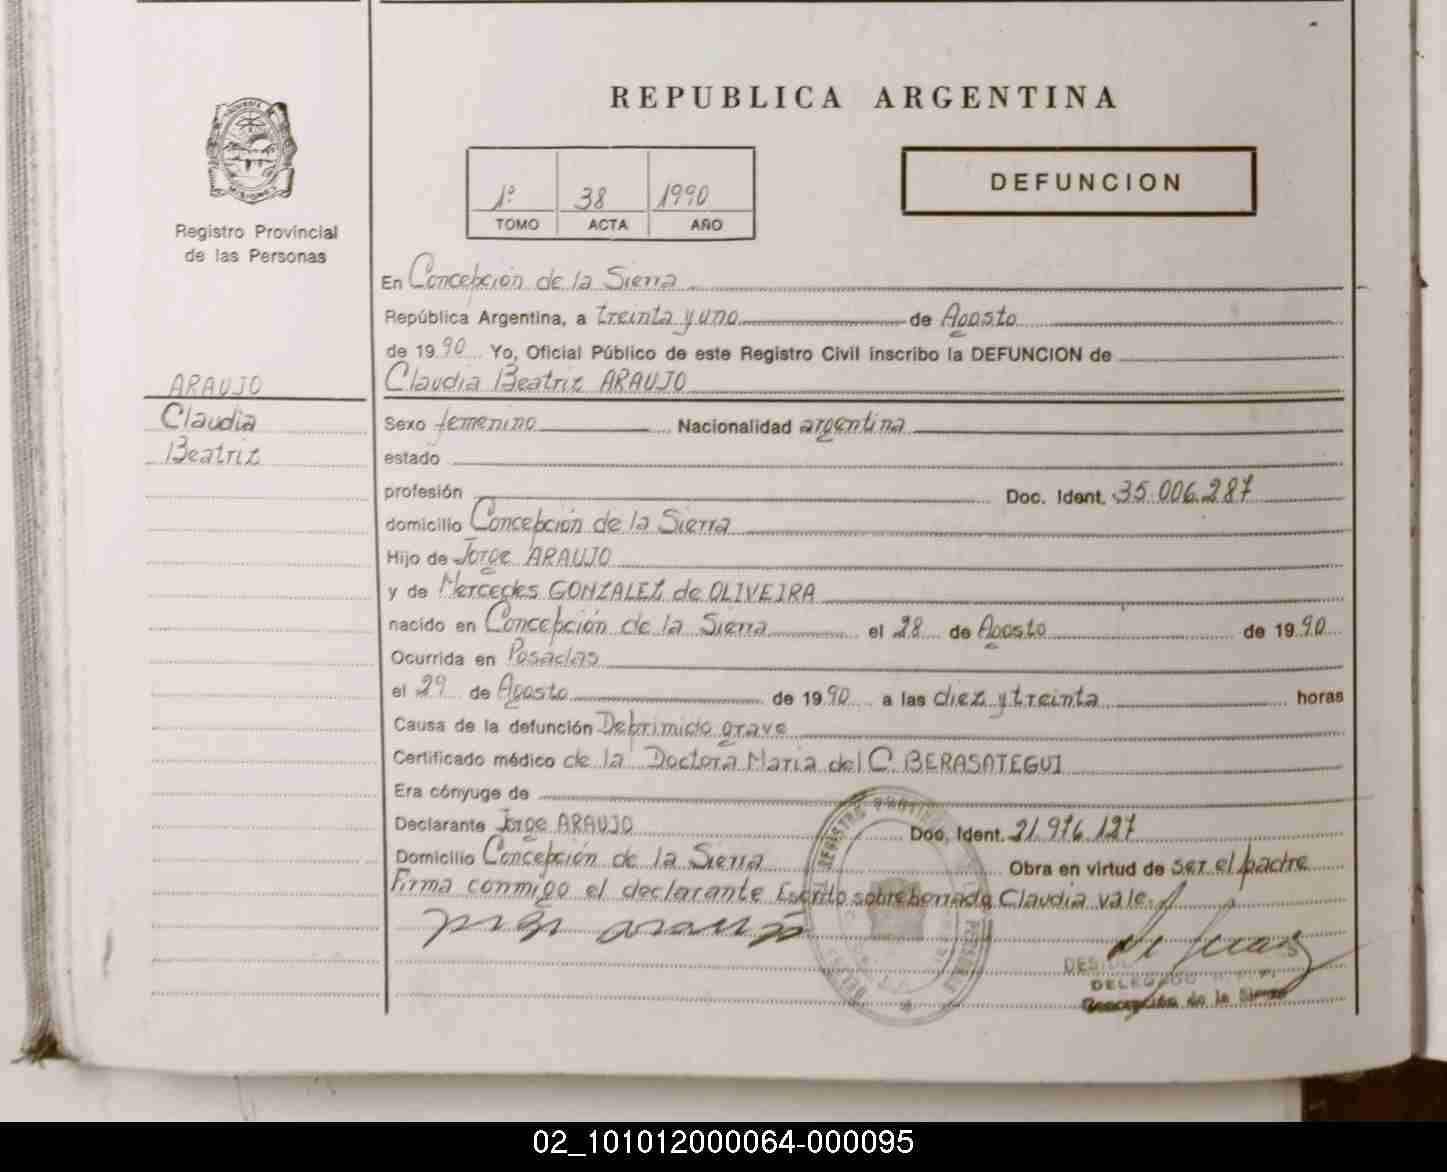 REPUBLICA ARGENTINA
MISIONES
Registro Provincial
de las Personas
1º 38 1990
TOMO ACTA AÑO
DEFUNCION
ARAUJO
Claudia
Beatriz
En Concepción de la Sierra
República Argentina, a treinta y uno de Agosto
de 1990 Yo, Oficial Público de este Registro Civil inscribo la DEFUNCION de
Claudia Beatriz ARAUJO
Sexo femenino Nacionalidad argentina
estado
profesión Doc. Ident. 35.006.287
domicilio Concepción de la Sierra
Hijo de Jorge ARAUJO
y de Mercedes GONZALEZ de OLIVEIRA
nacido en Concepción de la Sierra el 28 de Agosto de 1990
Ocurrida en Posadas
el 29 de Agosto de 1990 a las diez y treinta horas
Causa de la defunción Deprimido grave
Certificado médico de la Doctora Maria del C. BERASATEGUI
Era cónyuge de
Declarante Jorge ARAUJO Doc. Ident. 21.976.127
Domicilio Concepción de la Sierra Obra en virtud de ser el padre
Firma conmigo el declarante Escrito sobreborrado Claudia vale.
DELEGADO
Concepción de la Sierra
02_101012000064-000095